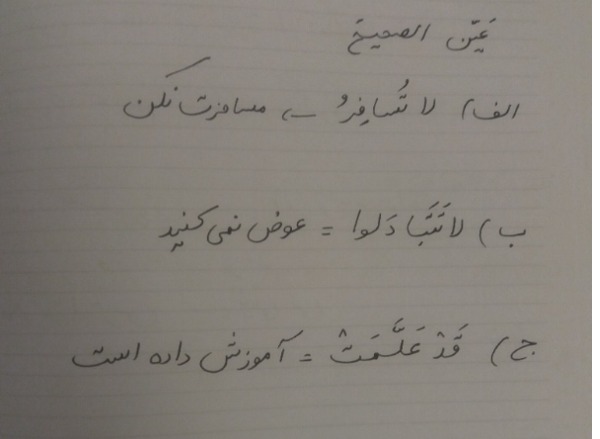 عَیِّن الصحیحَ
الف) لا تُسافِرُ ← مسافرت نکن
ب) لا تَتَبادَلوا = عوض نمی کنید
ج) قَدْ عَلَّمَتْ = آموزش داده است